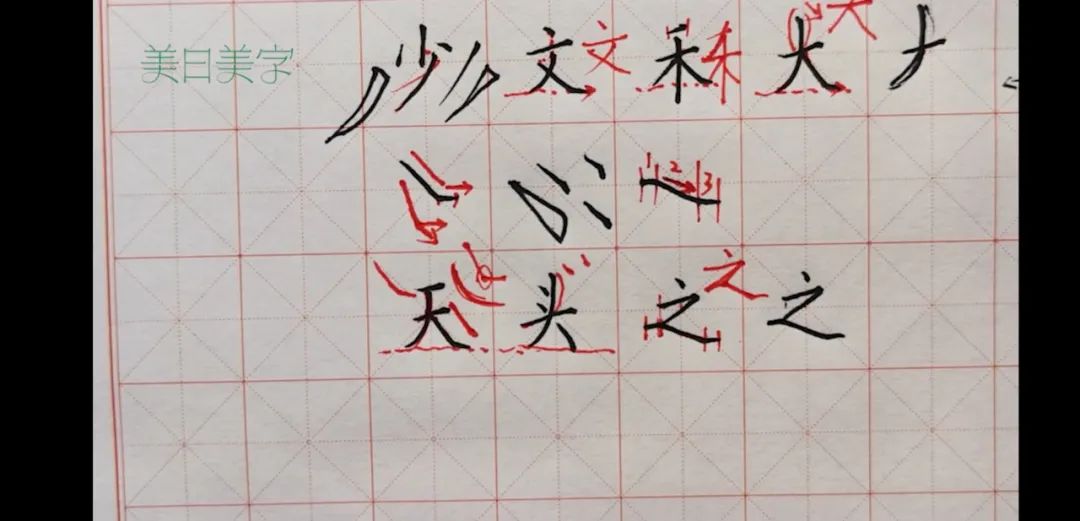 美日美字
少 文 文 禾 禾 大 大
1 2 3
天 头 之 之 之